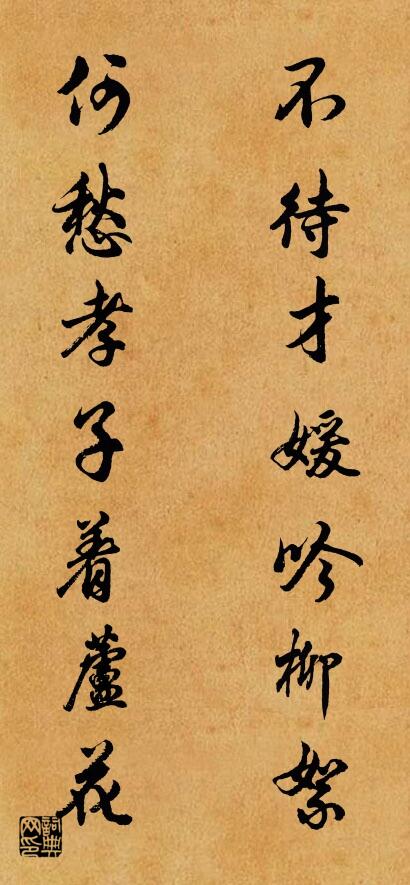 不待才媛吟柳絮
何愁孝子着蘆花
詞典网印